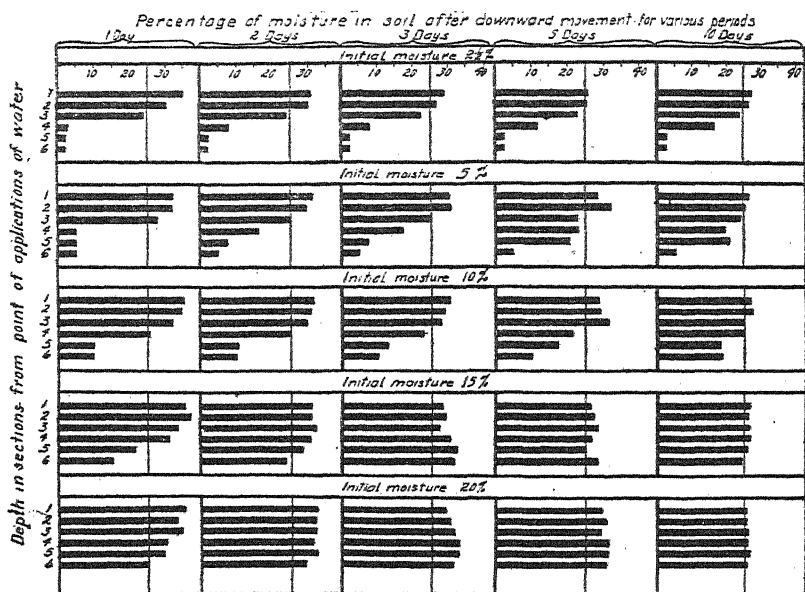 Percentage of moisture in soil after downward movement for various periods
1 Day 2 Days 3 Days 5 Days 10 Days
Initial moisture 2½%
10 20 30 10 20 30 10 20 30 40 10 20 30 40 10 20 30 40
1
2
3
4
5
6
Initial moisture 5%
1
2
3
4
5
6
Initial moisture 10%
1
2
3
4
5
6
Initial moisture 15%
1
2
3
4
5
6
Initial moisture 20%
1
2
3
4
5
6
Depth in sections from point of applications of water